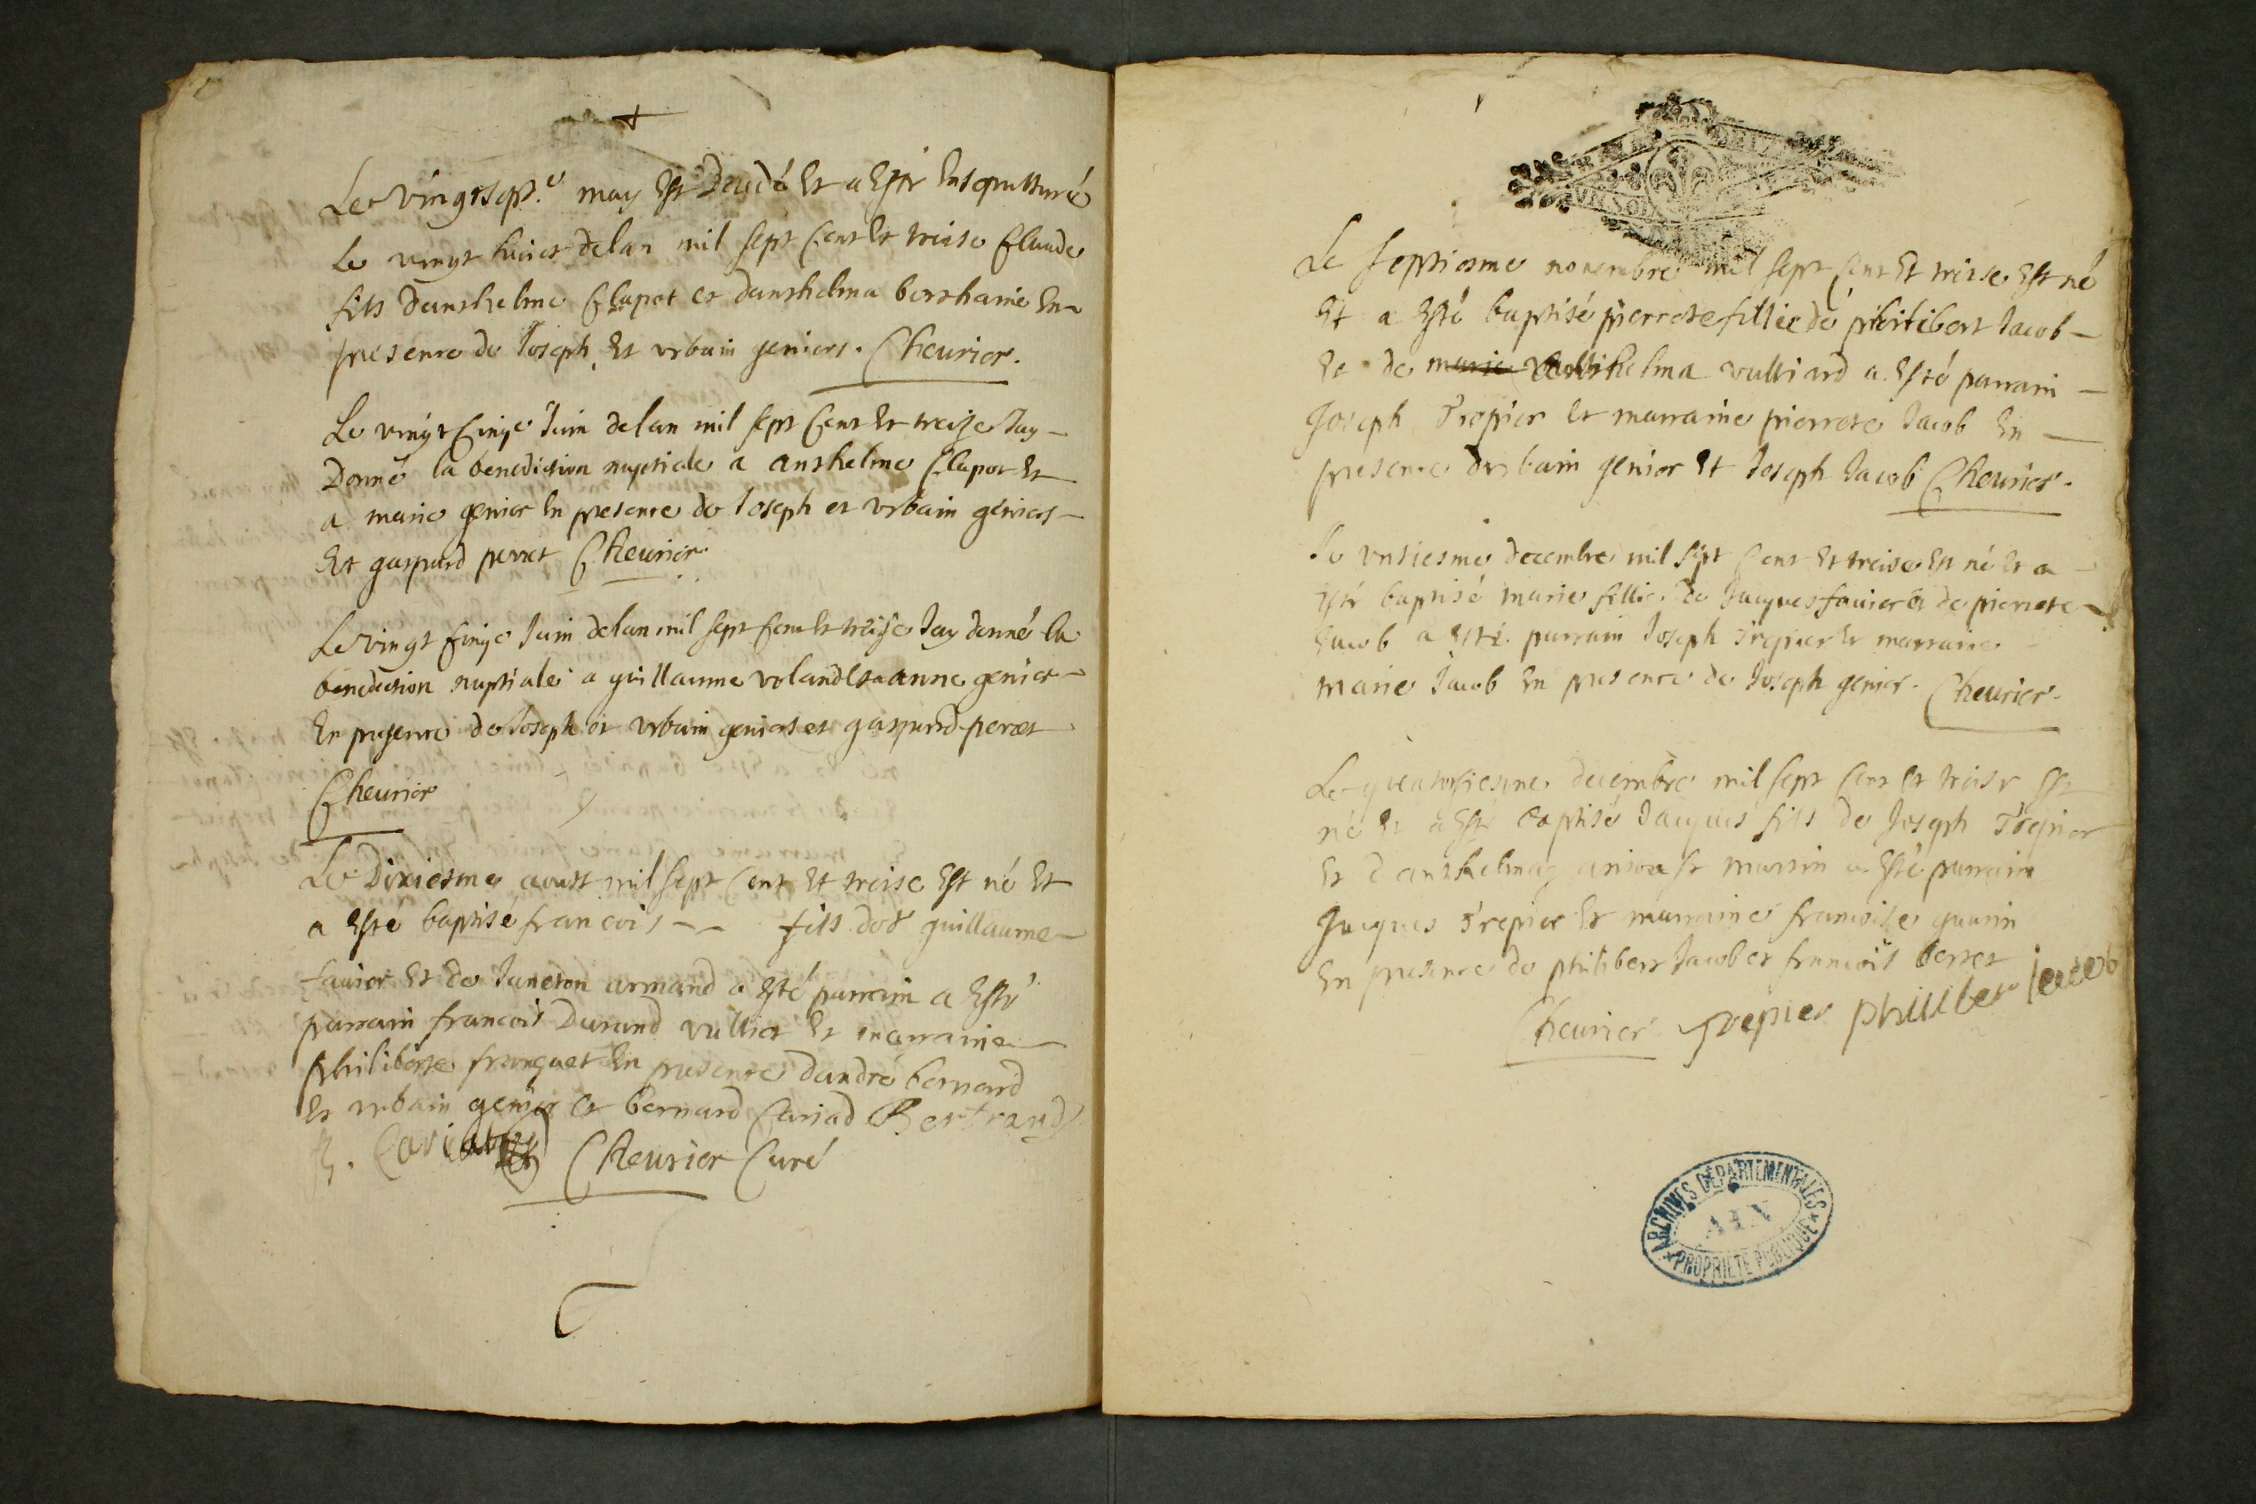 Le vingtsept.e may Est Decedé Et a Esté Ensepulturé
Le vingt huict de lan mil sept Cent Et treise Claude
fils Danthelme Clapot et danthelma berthaine En
presence de Joseph Et urbain geniers. Cheurier.
Le vingt Cinqe Juin de lan mil sept Cent Et treize Jay
Donné la benediction nuptiale a anthelme Clapot Et
a marie genier En presence de Joseph et urbain geniers
Et gaspard perret Cheurier
Le vingt Cinqe Juin de lan mil sept Cent Et treise Jay donné la
benediction nuptiale a guillaume voland Et a anne genier
En presence de Joseph et urbain geniers et gaspard peret
Cheurier
Le Dixiesme aoust mil sept Cent Et treise Est né Et
a Este baptisé francois fils de guillaume
fauier Et de Janeton armand a Esté parrain a Esté
parrain francois Durand vulliet Et marraine
philiberte franquet En presence dandré bernard
Et urbain genier Et bernard Cariad Bertrand
Cheurier Curé
Le septiesme novembre mil sept Cent Et treise Est né
Et a Esté baptisé pierrete fillie de philibert Jacob
Et de marie anthelma vulliard a Esté parrain
Joseph Trepier Et marraine pierrete Jacob En
presence durbain genier Et Joseph Jacob Cheurier.
Le unsiesme decembre mil sept Cent Et treise Est né Et a
Esté baptisé marie fillie de Jacques fauier Et de pierrete
Jacob a Esté parrain Joseph Trepier Et marraine
marie Jacob En presence de Joseph genier. Cheurier.
Le quatorsiesme decembre mil sept Cent Et treise Est
né Et a Esté baptisé Jacques fils de Joseph Trepier
Et danthelma a Esté parrain
Jacques Trepier Et marraine francoise guarin
En presence de philibert Jacob et francois berret
Cheurier Trepier philiber Jacob
ARCHIVES DÉPARTEMENTALES
AIN
PROPRIÉTÉ PUBLIQUE